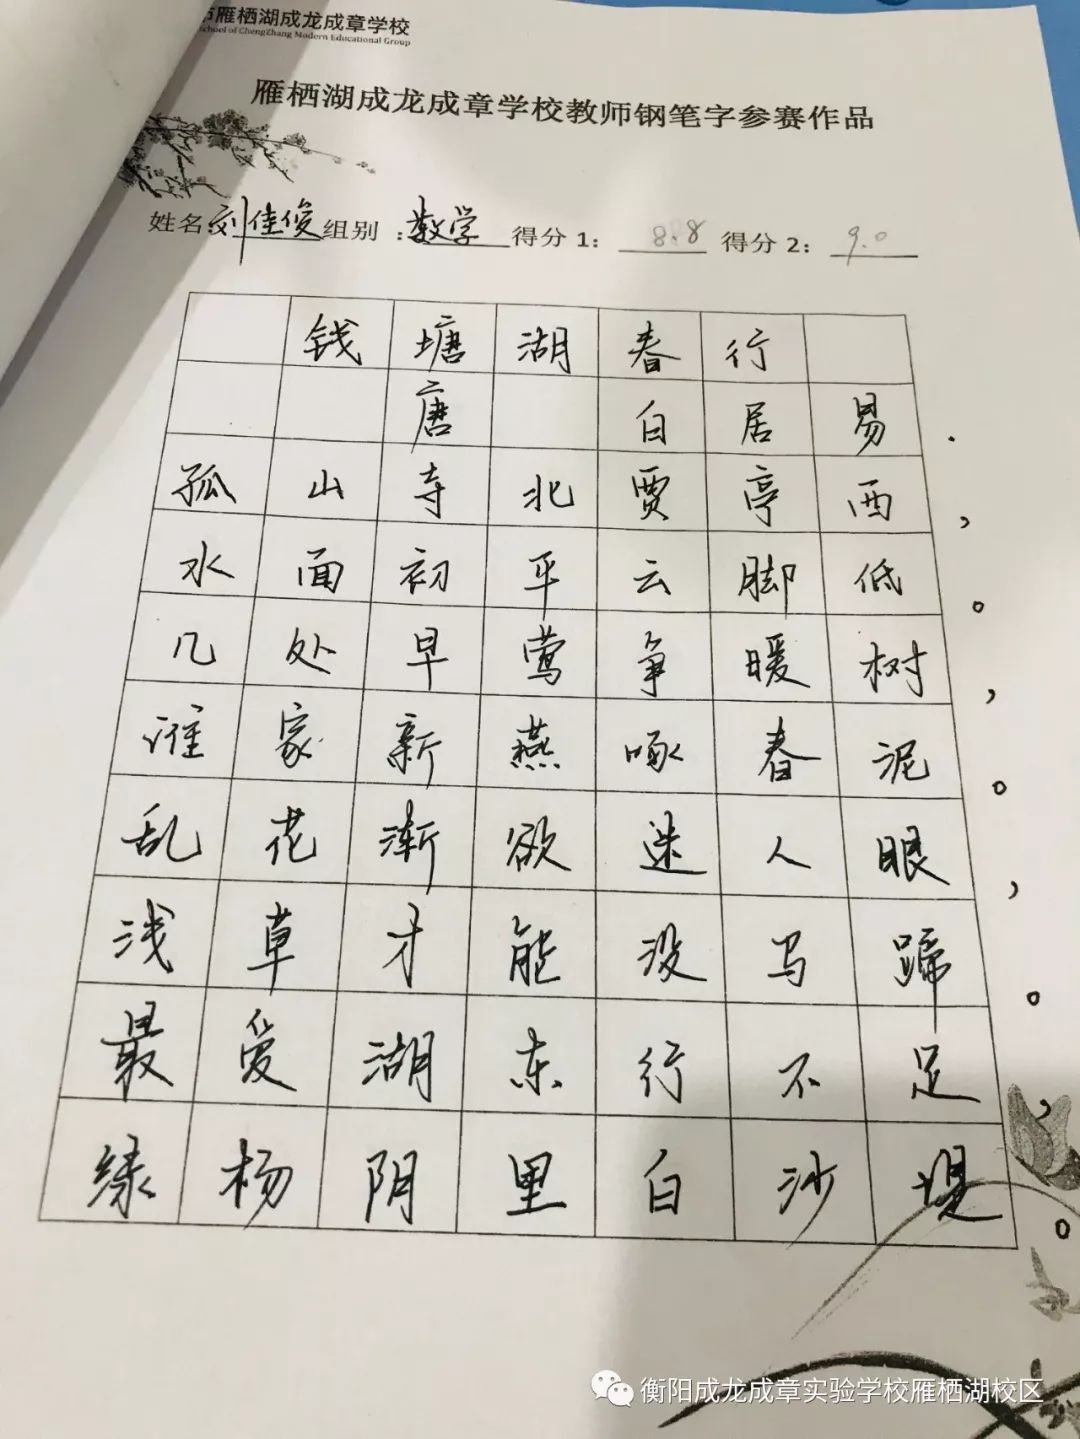 市雁栖湖成龙成章学校
School of ChengZhang Modern Educational Group
雁栖湖成龙成章学校教师钢笔字参赛作品
姓名:刘佳俊组别:数学 得分1: 8.8 得分2: 9.0
钱塘湖春行
唐 白居易.
孤山寺北贾亭西,
水面初平云脚低。
几处早莺争暖树,
谁家新燕啄春泥。
乱花渐欲迷人眼,
浅草才能没马蹄。
最爱湖东行不足,
绿杨阴里白沙堤。
衡阳成龙成章实验学校雁栖湖校区